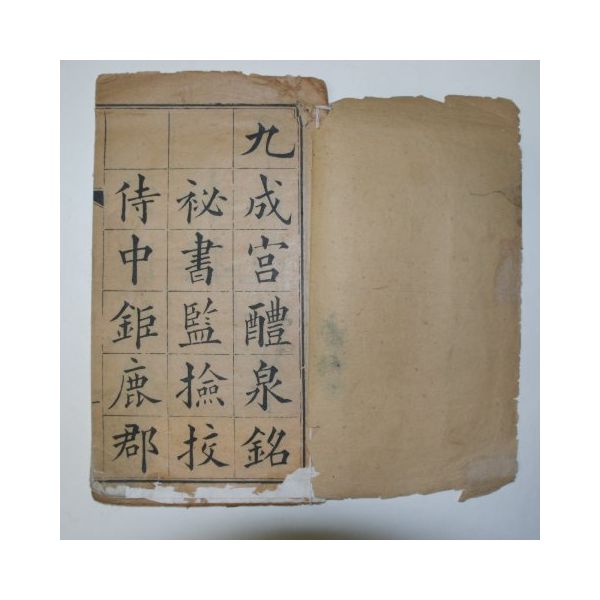 九成宮醴泉銘
秘書監撿挍
侍中鉅鹿郡